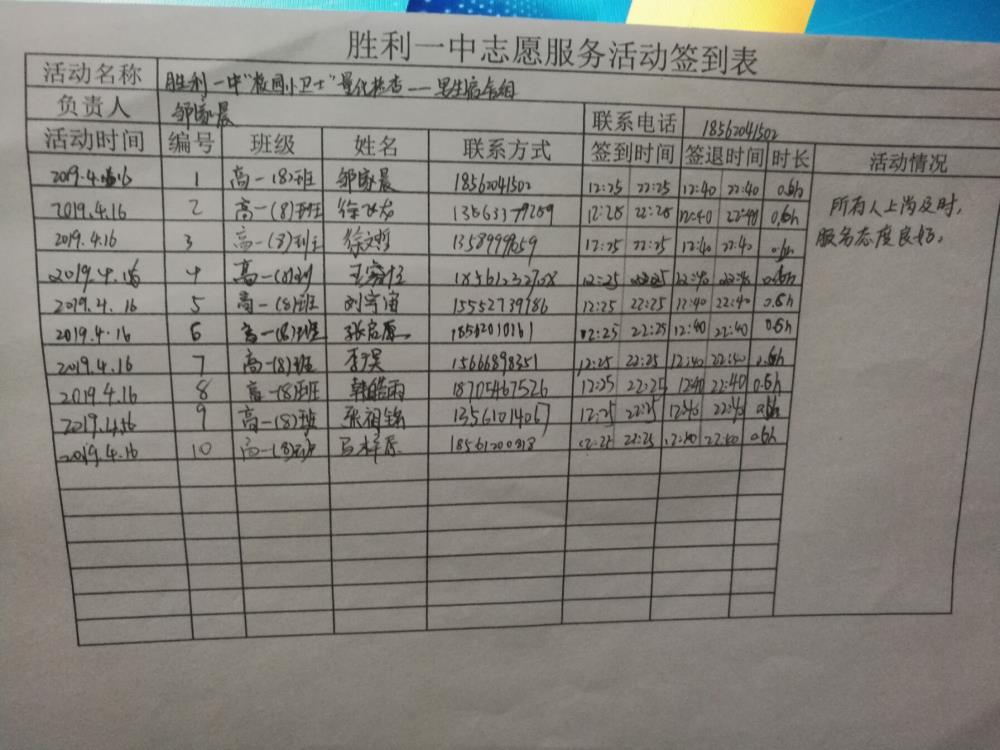 胜利一中志愿服务活动签到表
活动名称 胜利一中"校园小卫士"量化检查——男生宿舍组
负责人 邹家晨 联系电话 18562041502
活动时间 编号 班级 姓名 联系方式 签到时间 签退时间 时长 活动情况
2019.4.16 1 高一(8)班 邹家晨 18562041502 12:25 22:25 12:40 22:40 0.5h
2019.4.16 2 高一(8)班 12:25 22:25 12:40 22:40 0.5h
2019.4.16 3 高一(8)班 徐文哲 12:25 22:25 12:40 22:40 0.5h
2019.4.16 4 高一(8)班 12:25 22:25 12:40 22:40 0.5h
2019.4.16 5 高一(8)班 刘宇宙 15552739786 12:25 22:25 12:40 22:40 0.5h
2019.4.16 6 高一(8)班 12:25 22:25 12:40 22:40 0.5h
2019.4.16 7 高一(8)班 李昊 15666898351 12:25 22:25 12:40 22:40 0.5h
2019.4.16 8 高一(8)班 韩皓雨 18705467526 12:25 22:25 12:40 22:40 0.5h
2019.4.16 9 高一(8)班 张祖铭 13561014067 12:25 22:25 12:40 22:40 0.5h
2019.4.16 10 高一(8)班 12:25 22:25 12:40 22:40 0.5h
所有人上岗及时,
服务态度良好。